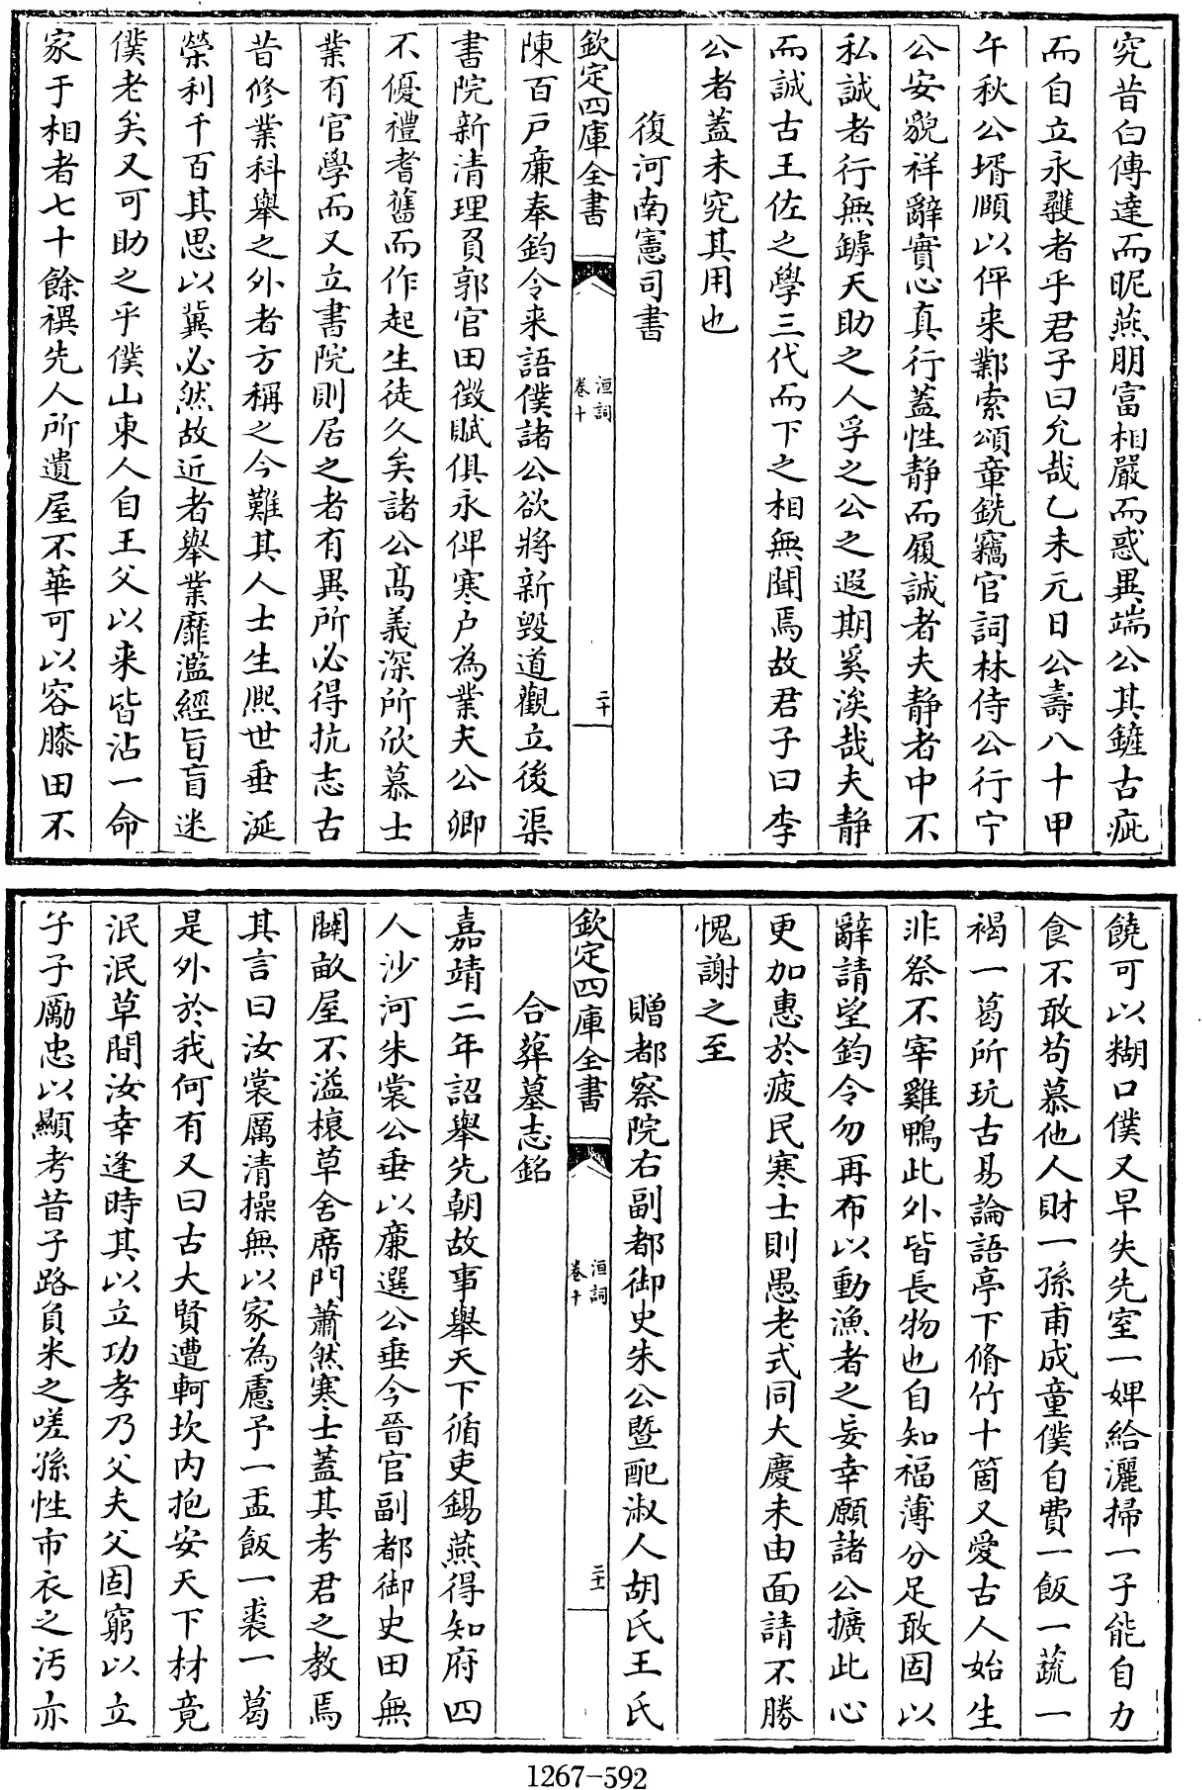 究昔白傅達而昵燕朋富相嚴而惑異端公其鏟古疵
而自立永韄者乎君子曰允哉乙未元日公壽八十甲
午秋公壻頋以伻来鄴索頌童銑竊官詞林侍公行宁
公安貌祥辭實心真行蓋性静而履誠者夫静者中不
私誠者行無罅天助之人孚之公之遐期奚涘哉夫静
而誠古王佐之學三代而下之相無聞焉故君子曰李
公者蓋未究其用也
復河南憲司書
欽定四庫全書
洹詞
卷十
二十
陳百戸亷奉鈞令来語僕諸公欲將新毁道觀立後渠
書院新清理員郭官田徴賦俱永俾寒戸為業夫公卿
不優禮耆舊而作起生徒久矣諸公髙義深所欣慕士
業有官學而又立書院則居之者有異所必得抗志古
昔修業科舉之外者方稱之今難其人士生熈世垂涎
榮利千百其思以冀必然故近者舉業靡濫經旨盲迷
僕老矣又可助之乎僕山東人自王父以来皆沾一命
家于相者七十餘禩先人所遺屋不華可以容膝田不
饒可以糊口僕又早失先室一婢給灑掃一子能自力
食不敢苟慕他人財一孫甫成童僕自費一飯一蔬一
褐一葛所玩古易論語亭下脩竹十箇又愛古人始生
非祭不宰雞鴨此外皆長物也自知福薄分足敢固以
辭請望鈞令勿再布以動漁者之妄幸願諸公擴此心
更加惠於疲民寒士則愚老式同大慶未由面請不勝
愧謝之至
贈都察院右副都御史朱公曁配淑人胡氏王氏
欽定四庫全書
洹詞
卷十
二十一
合葬墓志銘
嘉靖二年詔舉先朝故事舉天下循吏錫燕得知府四
人沙河朱裳公垂以亷選公垂今晉官副都御史田無
闢畝屋不溢榱草舍席門蕭然寒士蓋其考君之教焉
其言曰汝裳厲清操無以家為慮予一盂飯一裘一葛
是外於我何有又曰古大賢遭軻坎内抱安天下材竟
泯泯草間汝幸逢時其以立功孝乃父夫父固窮以立
子子厲忠以顯考昔子路負米之嗟孫性市衣之汚亦
1267-592